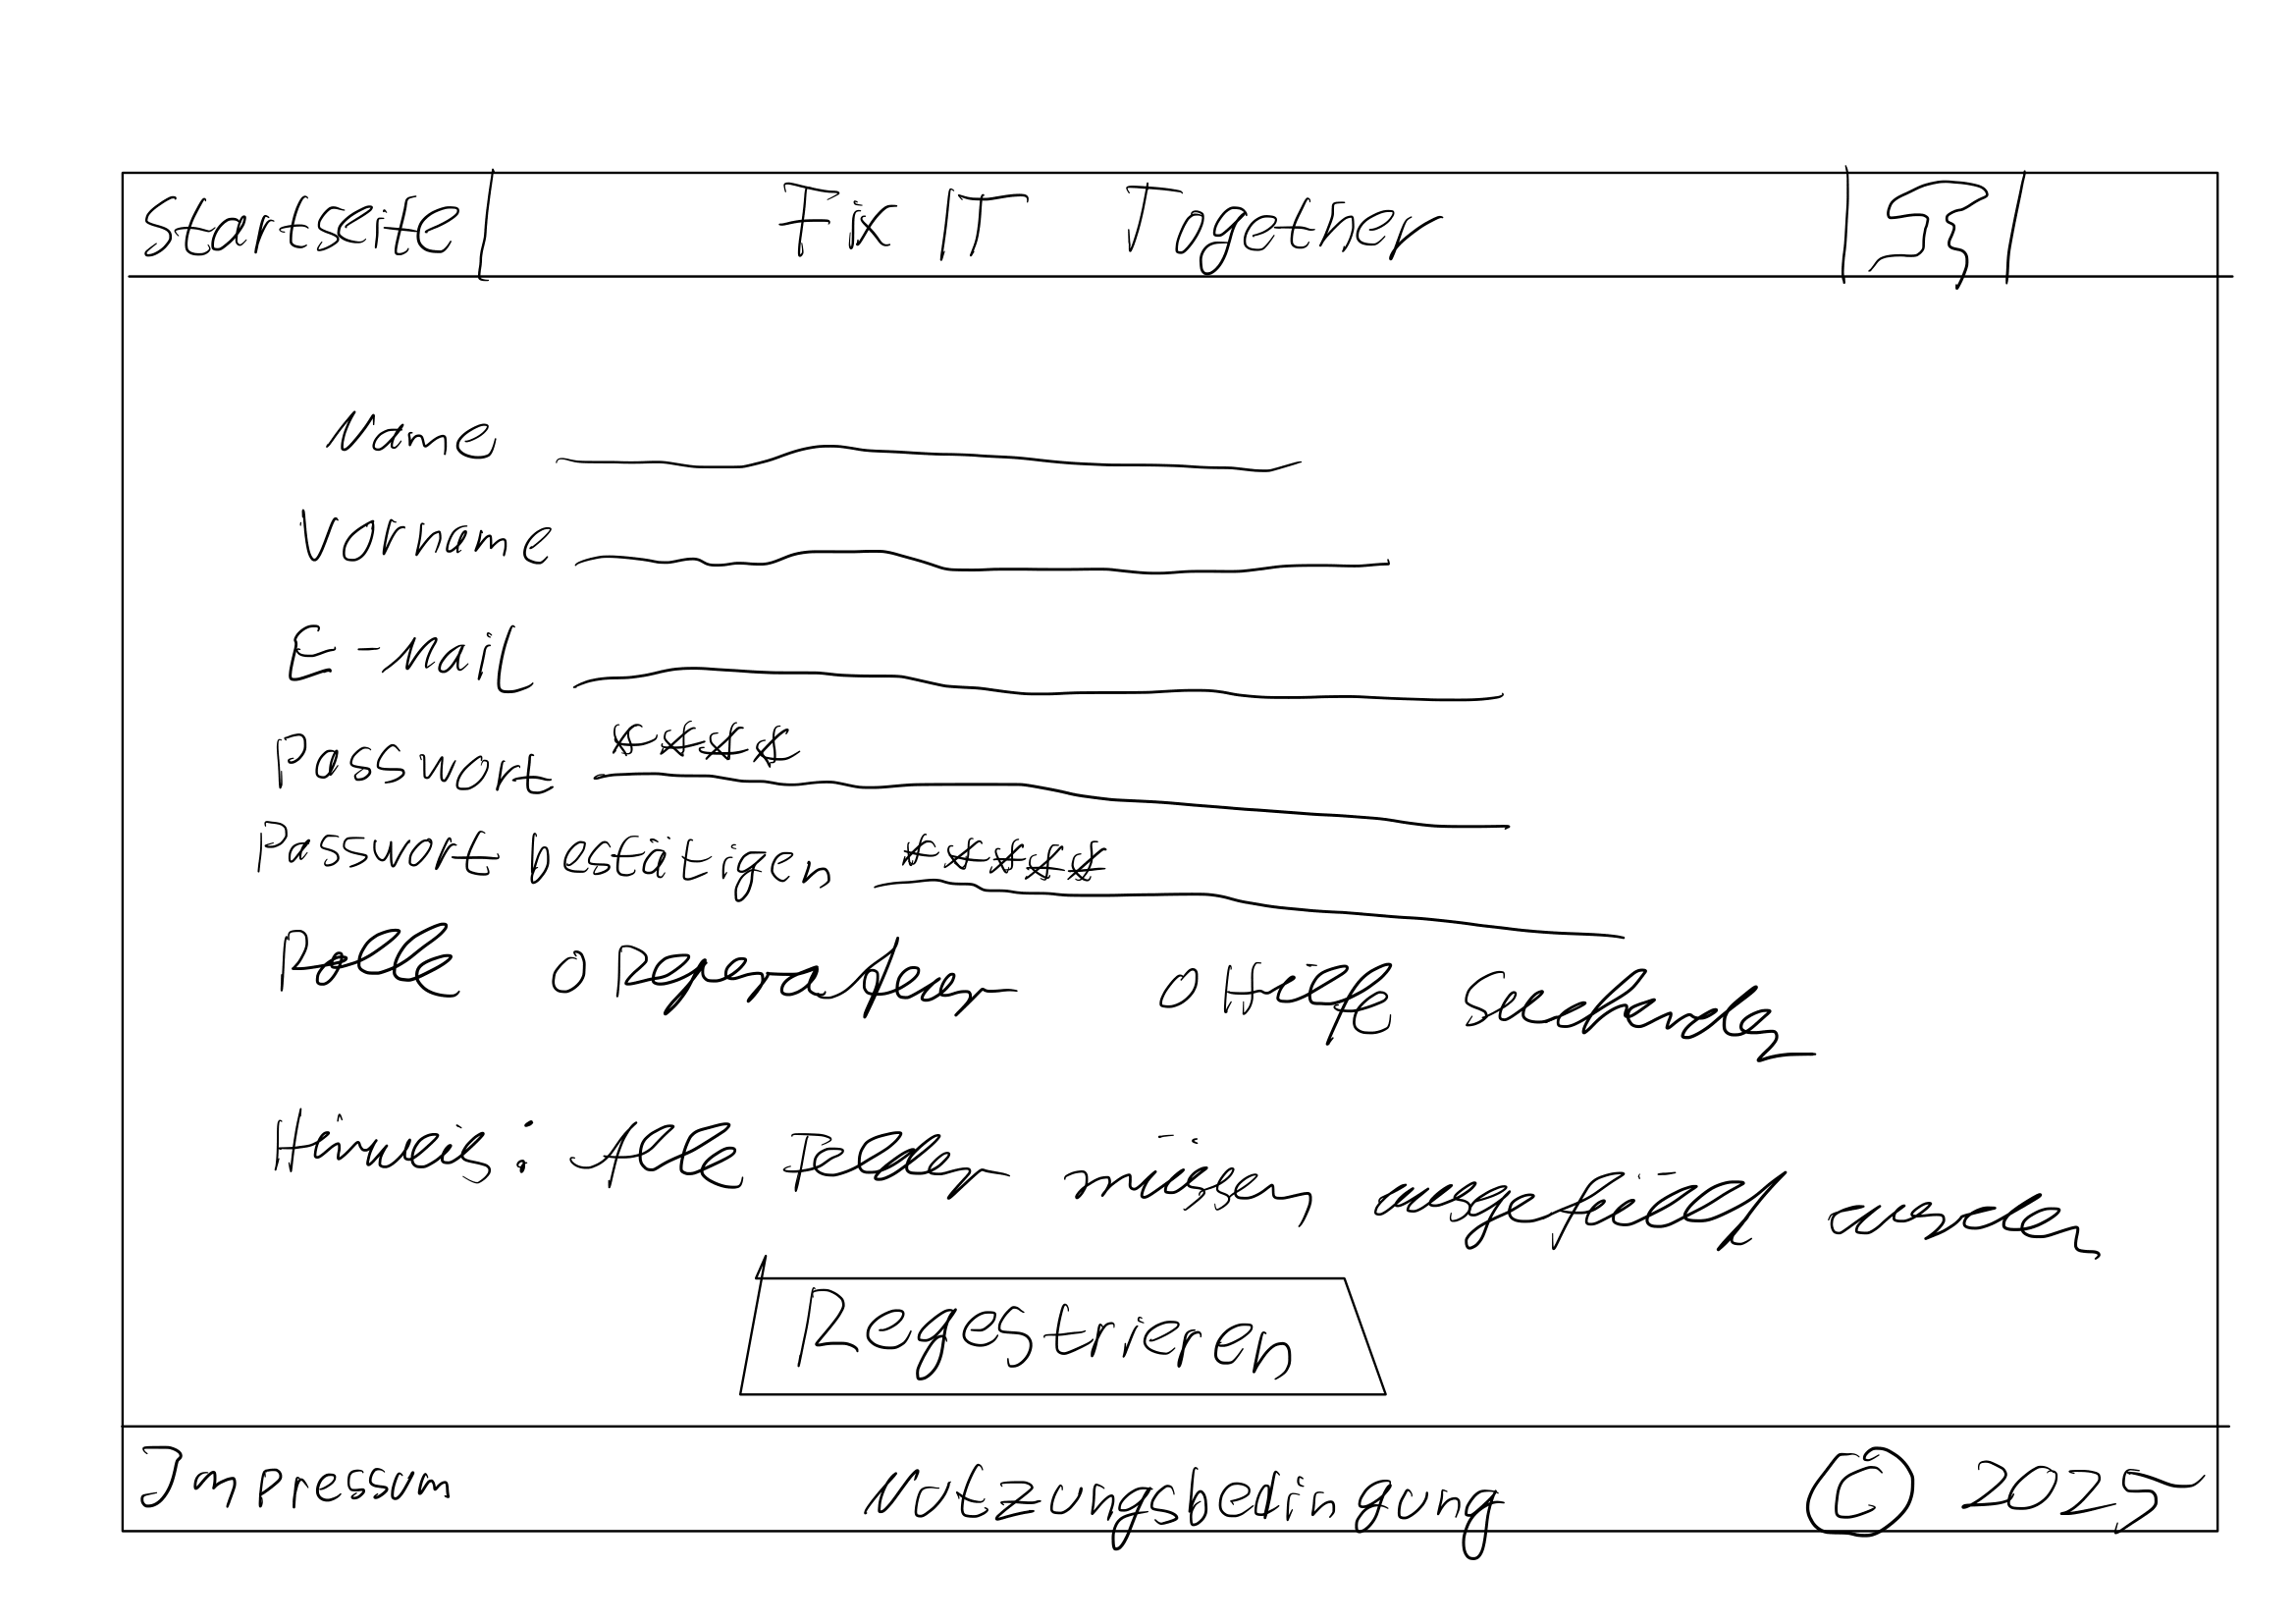 Startseite Fix IT Together
Name
Vorname
E-Mail
Passwort ****
Passwort bestätigen *****
Rolle O Reperateur O Hilfe Suchender
Hinweis: Alle Felder müssen ausgefüllt werden
Regestrieren
Impressum Nutzungsbedingung © 2025